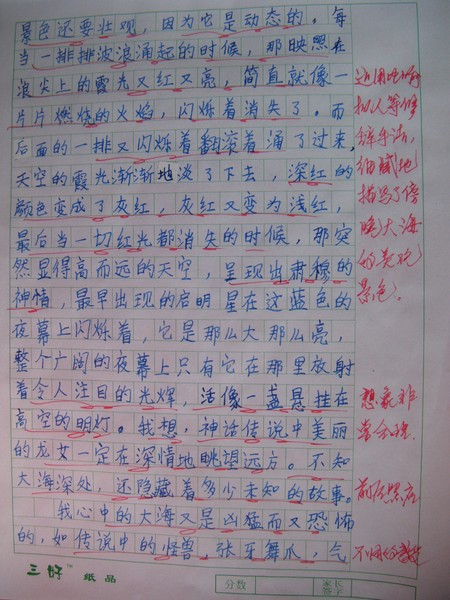 景色还要壮观，因为它是动态的。每
当一排排波浪涌起的时候，那映照在
浪尖上的霞光又红又亮，简直就像一
片片燃烧的火焰，闪烁着消失了。而
后面的一排又闪烁着翻滚着涌了过来，
天空的霞光渐渐地淡了下去，深红的
颜色变成了灰红，灰红又变为浅红，
最后当一切红光都消失的时候，那突
然显得高而远的天空，呈现出肃穆的
神情，最早出现的启明星在这蓝色的
夜幕上闪烁着，它是那么大那么亮，
整个广阔的夜幕上只有它在那里放射
着令人注目的光辉，活像一盏悬挂在
高空的明灯。我想，神话传说中美丽
的龙女一定在深情地眺望远方。不知
大海深处，还隐藏着多少未知的故事。
我心中的大海又是凶猛而又恐怖
的，如传说中的怪兽，张牙舞爪，气
运用比喻
拟人等修
辞手法，
细腻地
描写了傍
晚大海
的美丽
景色。
想象非
前后照应
三好 纸品
分数
家长
签字